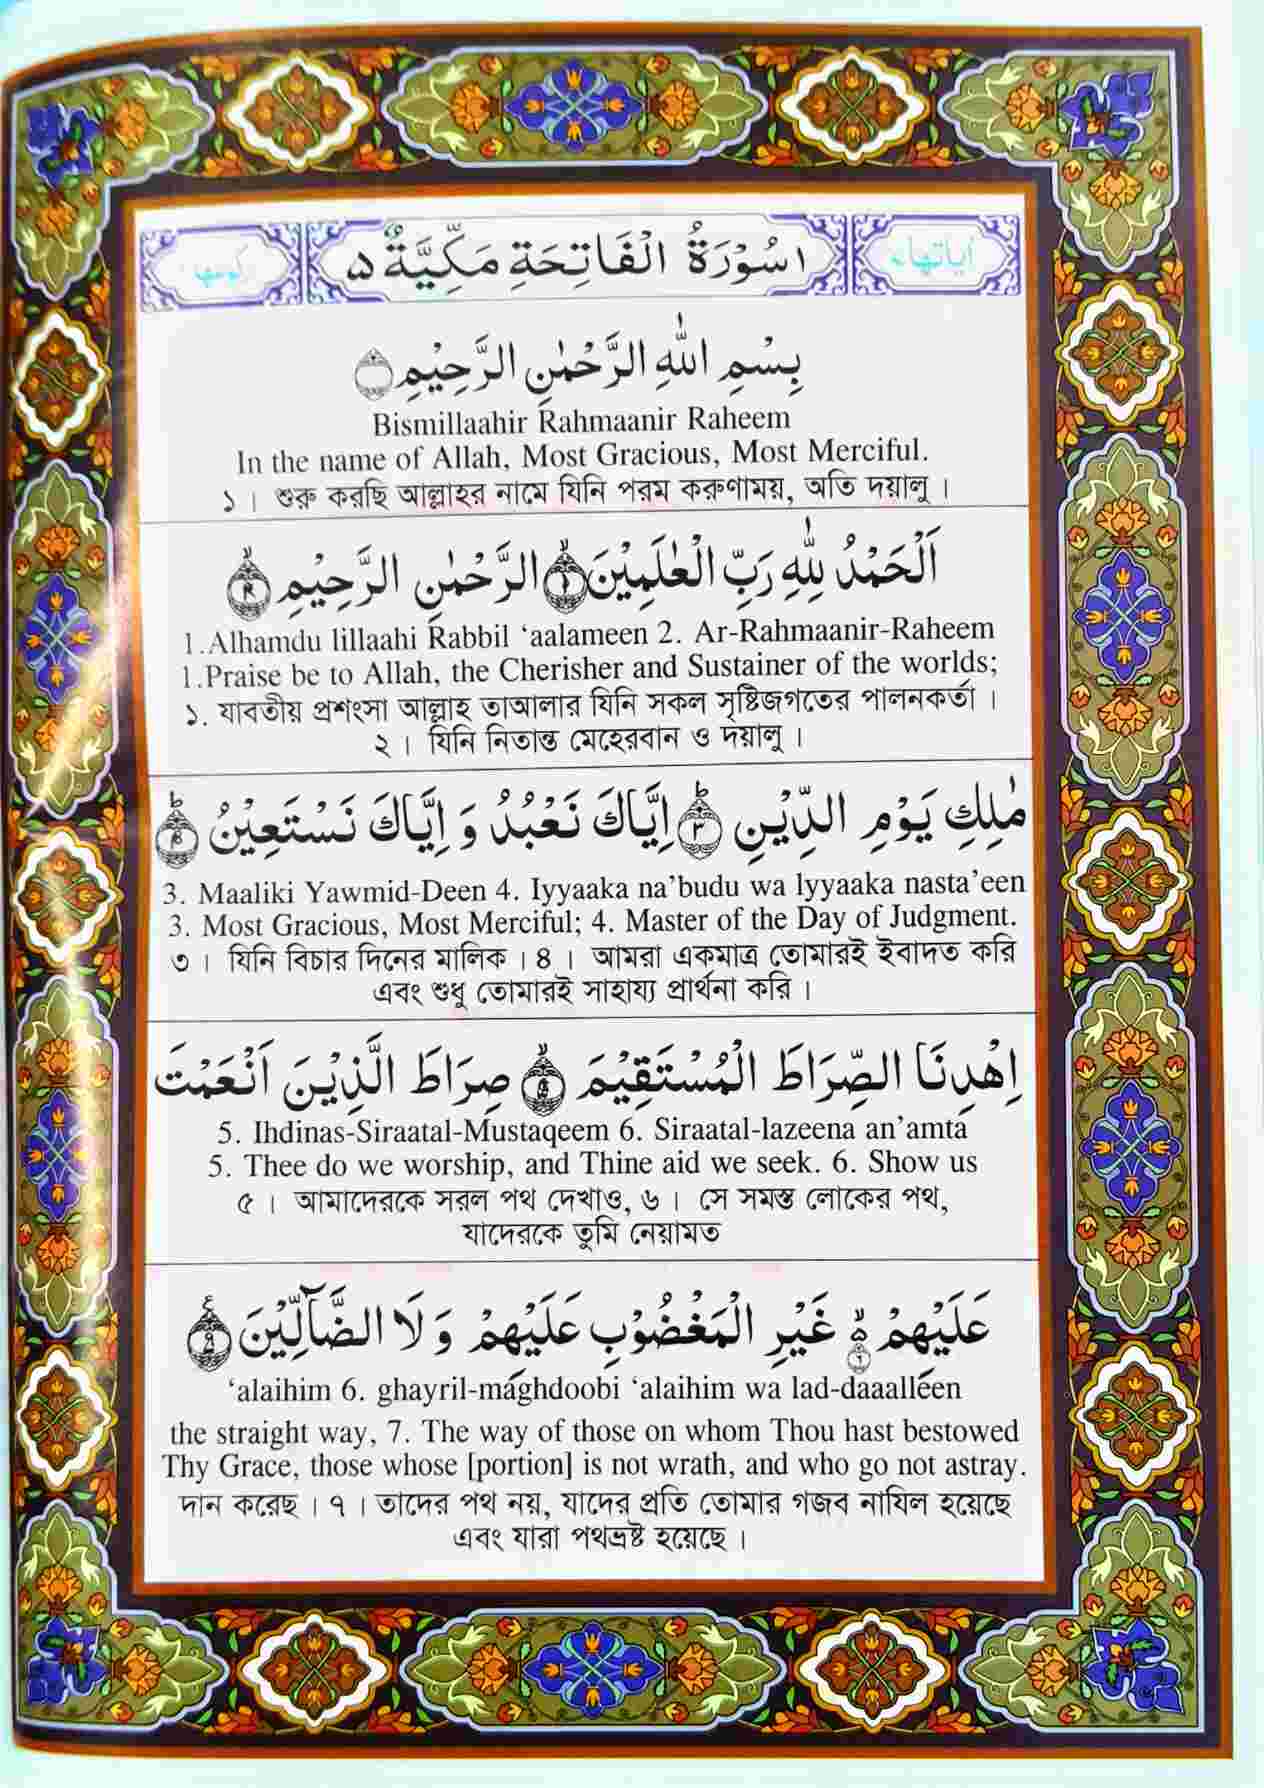 اٰیاتها ٧
١ سُوْرَةُ الْفَاتِحَةِ مَكِّيَّةٌ ٥
بِسْمِ اللّٰهِ الرَّحْمٰنِ الرَّحِيْمِ
Bismillaahir Rahmaanir Raheem
In the name of Allah, Most Gracious, Most Merciful.
১ । শুরু করছি আল্লাহর নামে যিনি পরম করুণাময়, অতি দয়ালু ।
اَلْحَمْدُ لِلّٰهِ رَبِّ الْعٰلَمِيْنَ ۙ﴿١﴾ الرَّحْمٰنِ الرَّحِيْمِ ۙ﴿٢﴾
1.Alhamdu lillaahi Rabbil ‘aalameen 2. Ar-Rahmaanir-Raheem
1.Praise be to Allah, the Cherisher and Sustainer of the worlds;
১. যাবতীয় প্রশংসা আল্লাহ তাআলার যিনি সকল সৃষ্টিজগতের পালনকর্তা ।
২ । যিনি নিতান্ত মেহেরবান ও দয়ালু ।
مٰلِكِ يَوْمِ الدِّيْنِ ؕ﴿٣﴾ اِيَّاكَ نَعْبُدُ وَ اِيَّاكَ نَسْتَعِيْنُ ؕ﴿٤﴾
3. Maaliki Yawmid-Deen 4. Iyyaaka na’budu wa lyyaaka nasta’een
3. Most Gracious, Most Merciful; 4. Master of the Day of Judgment.
৩ । যিনি বিচার দিনের মালিক । ৪ । আমরা একমাত্র তোমারই ইবাদত করি
এবং শুধু তোমারই সাহায্য প্রার্থনা করি ।
اِهْدِنَا الصِّرَاطَ الْمُسْتَقِيْمَ ۙ﴿٥﴾ صِرَاطَ الَّذِيْنَ اَنْعَمْتَ
5. Ihdinas-Siraatal-Mustaqeem 6. Siraatal-lazeena an’amta
5. Thee do we worship, and Thine aid we seek. 6. Show us
৫ । আমাদেরকে সরল পথ দেখাও, ৬ । সে সমস্ত লোকের পথ,
যাদেরকে তুমি নেয়ামত
عَلَيْهِمْ ۙ﴿٦﴾ غَيْرِ الْمَغْضُوْبِ عَلَيْهِمْ وَ لَا الضَّآلِّيْنَ ﴿٧﴾
‘alaihim 6. ghayril-mághdoobi ‘alaihim wa lad-daaalléen
the straight way, 7. The way of those on whom Thou hast bestowed
Thy Grace, those whose [portion] is not wrath, and who go not astray.
দান করেছ । ৭ । তাদের পথ নয়, যাদের প্রতি তোমার গজব নাযিল হয়েছে
এবং যারা পথভ্রষ্ট হয়েছে ।